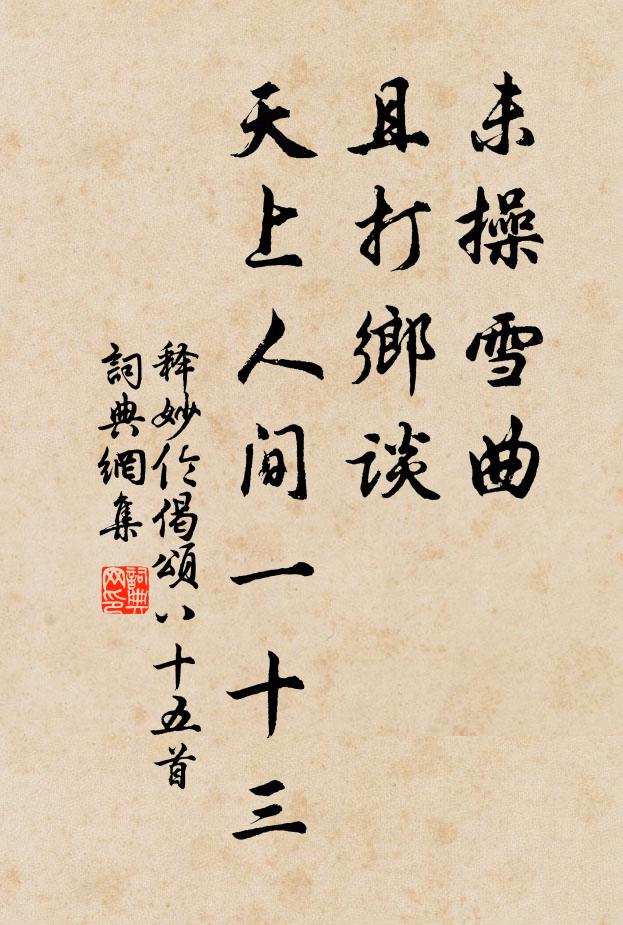 未操雪曲
且打鄉談
天上人间一十三
释妙伦偈頌八十五首
詞典網集
詞典网印